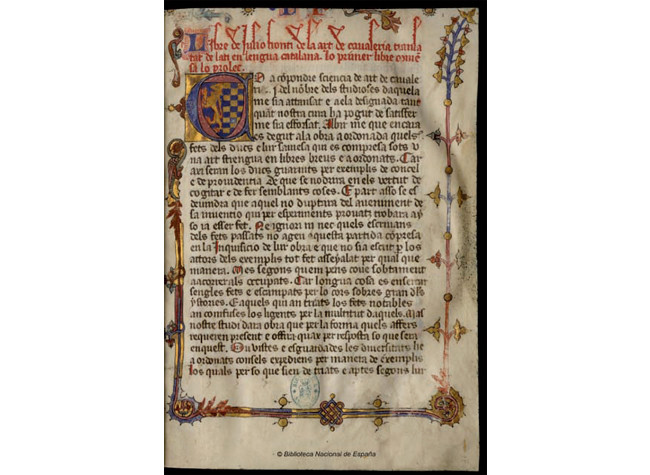 Libre de Julio fronti de la art de cavaleria transla
tat de lati en lengua catalana. lo primer libre comēe
sa lo prolec.
a cōpondre sciencia de art de cavale
ria. J del nōbre dels studioses daquela
me sia attinsat e a ela desiguada tant
quāt nostra cura ha pogut de satisfer
me sia esforsat. Albir me que encara
es degut a la obra a ordonada quels
fets dels ducs e lur saviesa que es compresa sots v
na art strenga en libres breus e a ordonats. Car
axi seran los ducs guarnits per exemplis de concel
e de providentia de que se nodrira en els vertut de
cogitar e de fer semblants coses. E part asso se es
devindra que aquel no duptara del aveniment de
sa inventio qui per esperiments provats trobara ay
so ia esser fet. Ne ignor ni nec quels escrivans
dels fets passats no agen aquesta partida cōpresa
en la Inquisicio de lur obra e que no sia escrit p los
actors dels exemplis tot fet asseyalat per qual que
manera. Mes segons quem pens cove sobtament
a acorrer als occupats. Car longua cosa es encercar
sengles fets e escampats per lo cors sobres gran dls
ystories. E aquels qui an triats los fets notables
an confuses los ligents per la multitut daquels. Mas
nostre studi dara obra que per la forma quels affers
requeren present e offira quax per resposta so que sera
enquest. Que vistes e esguardades les diversitats he
a ordonats consels expediens per manera de exemplis
los quals per so que sien de triats e aptes segons lur
© Biblioteca Nacional de España